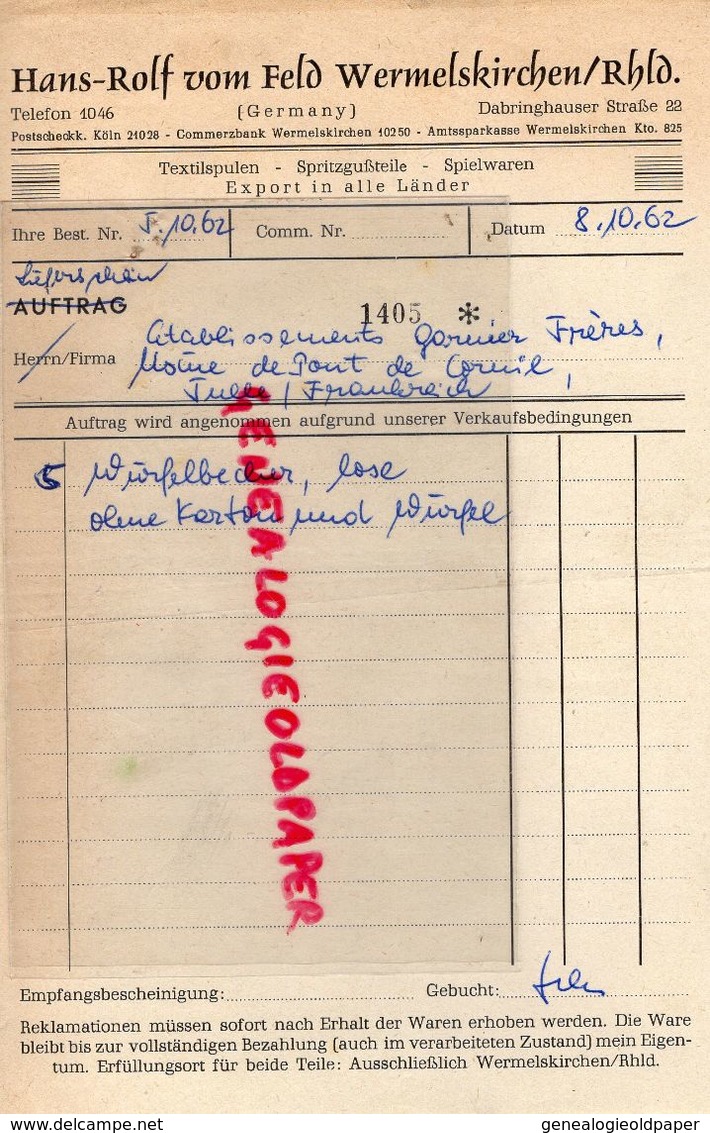 Hans-Rolf vom Feld Wermelskirchen/Rhld.
Telefon 1046 (Germany) Dabringhauser Straße 22
Postscheckk. Köln 21028 - Commerzbank Wermelskirchen 10250 - Amtssparkasse Wermelskirchen Kto. 825
Textilspulen - Spritzgußteile - Spielwaren
Export in alle Länder
Ihre Best. Nr. 5.10.62 Comm. Nr. Datum 8.10.62
Lieferschein
AUFTRAG 1405 *
Etablissements Garnier Frères,
Herrn/Firma Usine de Pont de Cornil,
Tulle / Frankreich
Auftrag wird angenommen aufgrund unserer Verkaufsbedingungen
5 Würfelbecher, lose
ohne Karton und Würfel
GENEALOGIEOLDPAPER
Empfangsbescheinigung: Gebucht:
Reklamationen müssen sofort nach Erhalt der Waren erhoben werden. Die Ware
bleibt bis zur vollständigen Bezahlung (auch im verarbeiteten Zustand) mein Eigen-
tum. Erfüllungsort für beide Teile: Ausschließlich Wermelskirchen/Rhld.
www.delcampe.net genealogieoldpaper